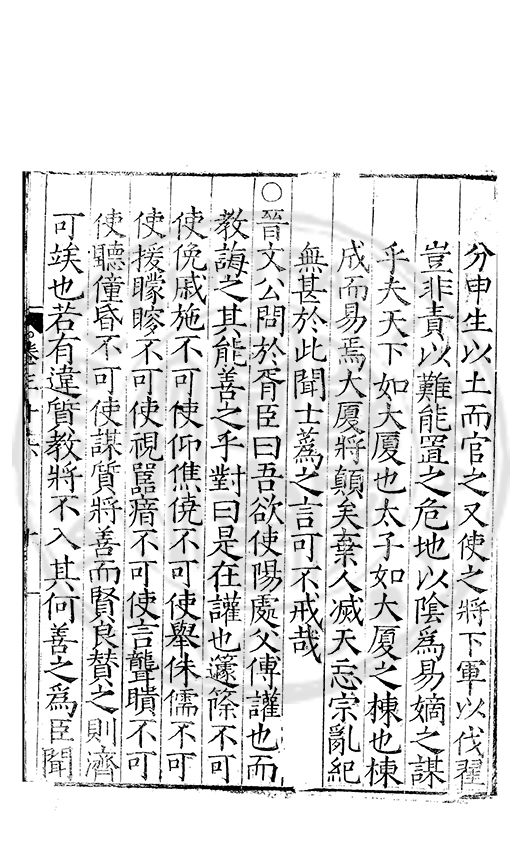 分申生以土而官之又使之將下軍以伐翟
豈非責以難能置之危地以陰為易嫡之謀
乎夫天下如大厦也太子如大厦之棟也棟
成而易焉大厦將顛矣棄人滅天忘宗亂紀
無甚於此聞士蒍之言可不戒哉
○晉文公問於胥臣曰吾欲使陽處父傅讙也而
教誨之其能善之乎對曰是在讙也蘧篨不可
使俛戚施不可使仰僬僥不可使舉侏儒不可
使援矇瞍不可使視嚚瘖不可使言聾聵不可
使聽僮昏不可使謀質將善而賢良賛之則濟
可竢也若有違質教將不入其何善之為臣聞